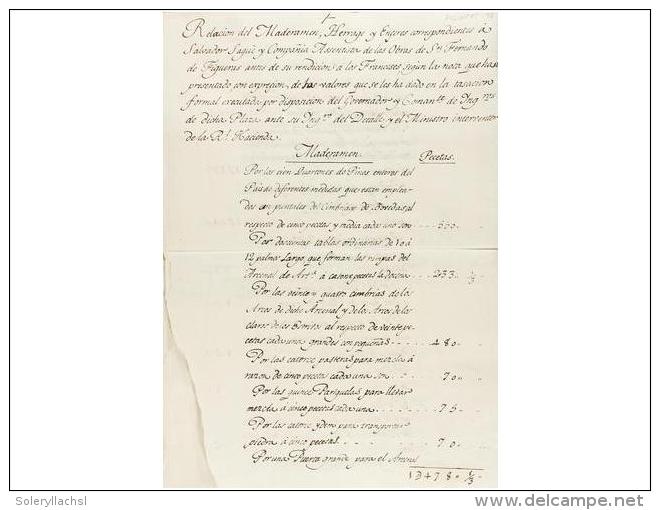 Relacion del Maderamen, Herrage y Enseres correspondientes à
Salvador Sagüe y Compañia Asentista de las Obras de Sn. Fernando
de Figueras antes de su rendicion à los Franceses segun la nota que han
presentado con exprecion de los valores que se les ha dado en la tasacion
formal executada por disposicion del Governador y Coman.te de Ing.ros
de dicha Plaza ante su Ing.ro del Detalle, y el Ministro interventor
de la Rl. Hacienda.
Maderamen. Pecetas.
Por los cien Quartones de Pinos enteros del
Pais de diferentes medidas que estan emplea-
dos en puntales del Cimbriage de Bovedas al
respecto de cinco pecetas y media cada uno son 550.
Por doscientas tablas ordinarias de 10 à
12 palmos largo, que forman las rimpas del
Arcenal de Art.a à catorse pecetas la docena 233 1/3
Por las veinte y quatro cimbrias de los
Arcos de dicho Arcenal y de los Arcos de los
claros de los Ormitos al respecto de veinte pe-
cetas cada una grandes con pequeñas 480.
Por las catorze pasteras para mezcla à
razon de cinco pecetas cada una son 70.
Por las quinze Pariguelas para llevar
mezcla à cinco pecetas cada una 75
Por las catorze yden para transportar
piedra à cinco pecetas. 70.
Por una Puerta grande para el Arcenal
1347 8 1/3
Soleryllachsl
delcampe.net